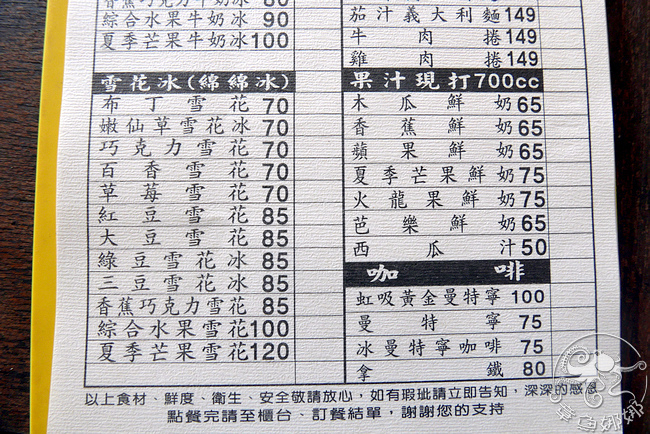 香蕉巧克力牛奶冰 80
綜合水果牛奶冰 90
夏季芒果牛奶冰 100
雪花冰(綿綿冰)
布丁雪花 70
嫩仙草雪花冰 70
巧克力雪花 70
百香雪花 70
草莓雪花 70
紅豆雪花 85
大豆雪花 85
綠豆雪花 85
三豆雪花 85
香蕉巧克力雪花 85
綜合水果雪花 100
夏季芒果雪花 120
茄汁義大利麵 149
牛肉捲 149
雞肉捲 149
果汁現打700cc
木瓜鮮奶 65
香蕉鮮奶 65
蘋果鮮奶 65
夏季芒果鮮奶 75
火龍果鮮奶 75
芭樂鮮奶 65
西瓜汁 50
咖啡
虹吸黃金曼特寧 100
曼特寧 75
冰曼特寧咖啡 75
拿鐵 80
以上食材、鮮度、衛生、安全敬請放心,如有瑕玼請立即告知,深深的感急
點餐完請至櫃台、訂餐結單,謝謝您的支持
章魚娜娜